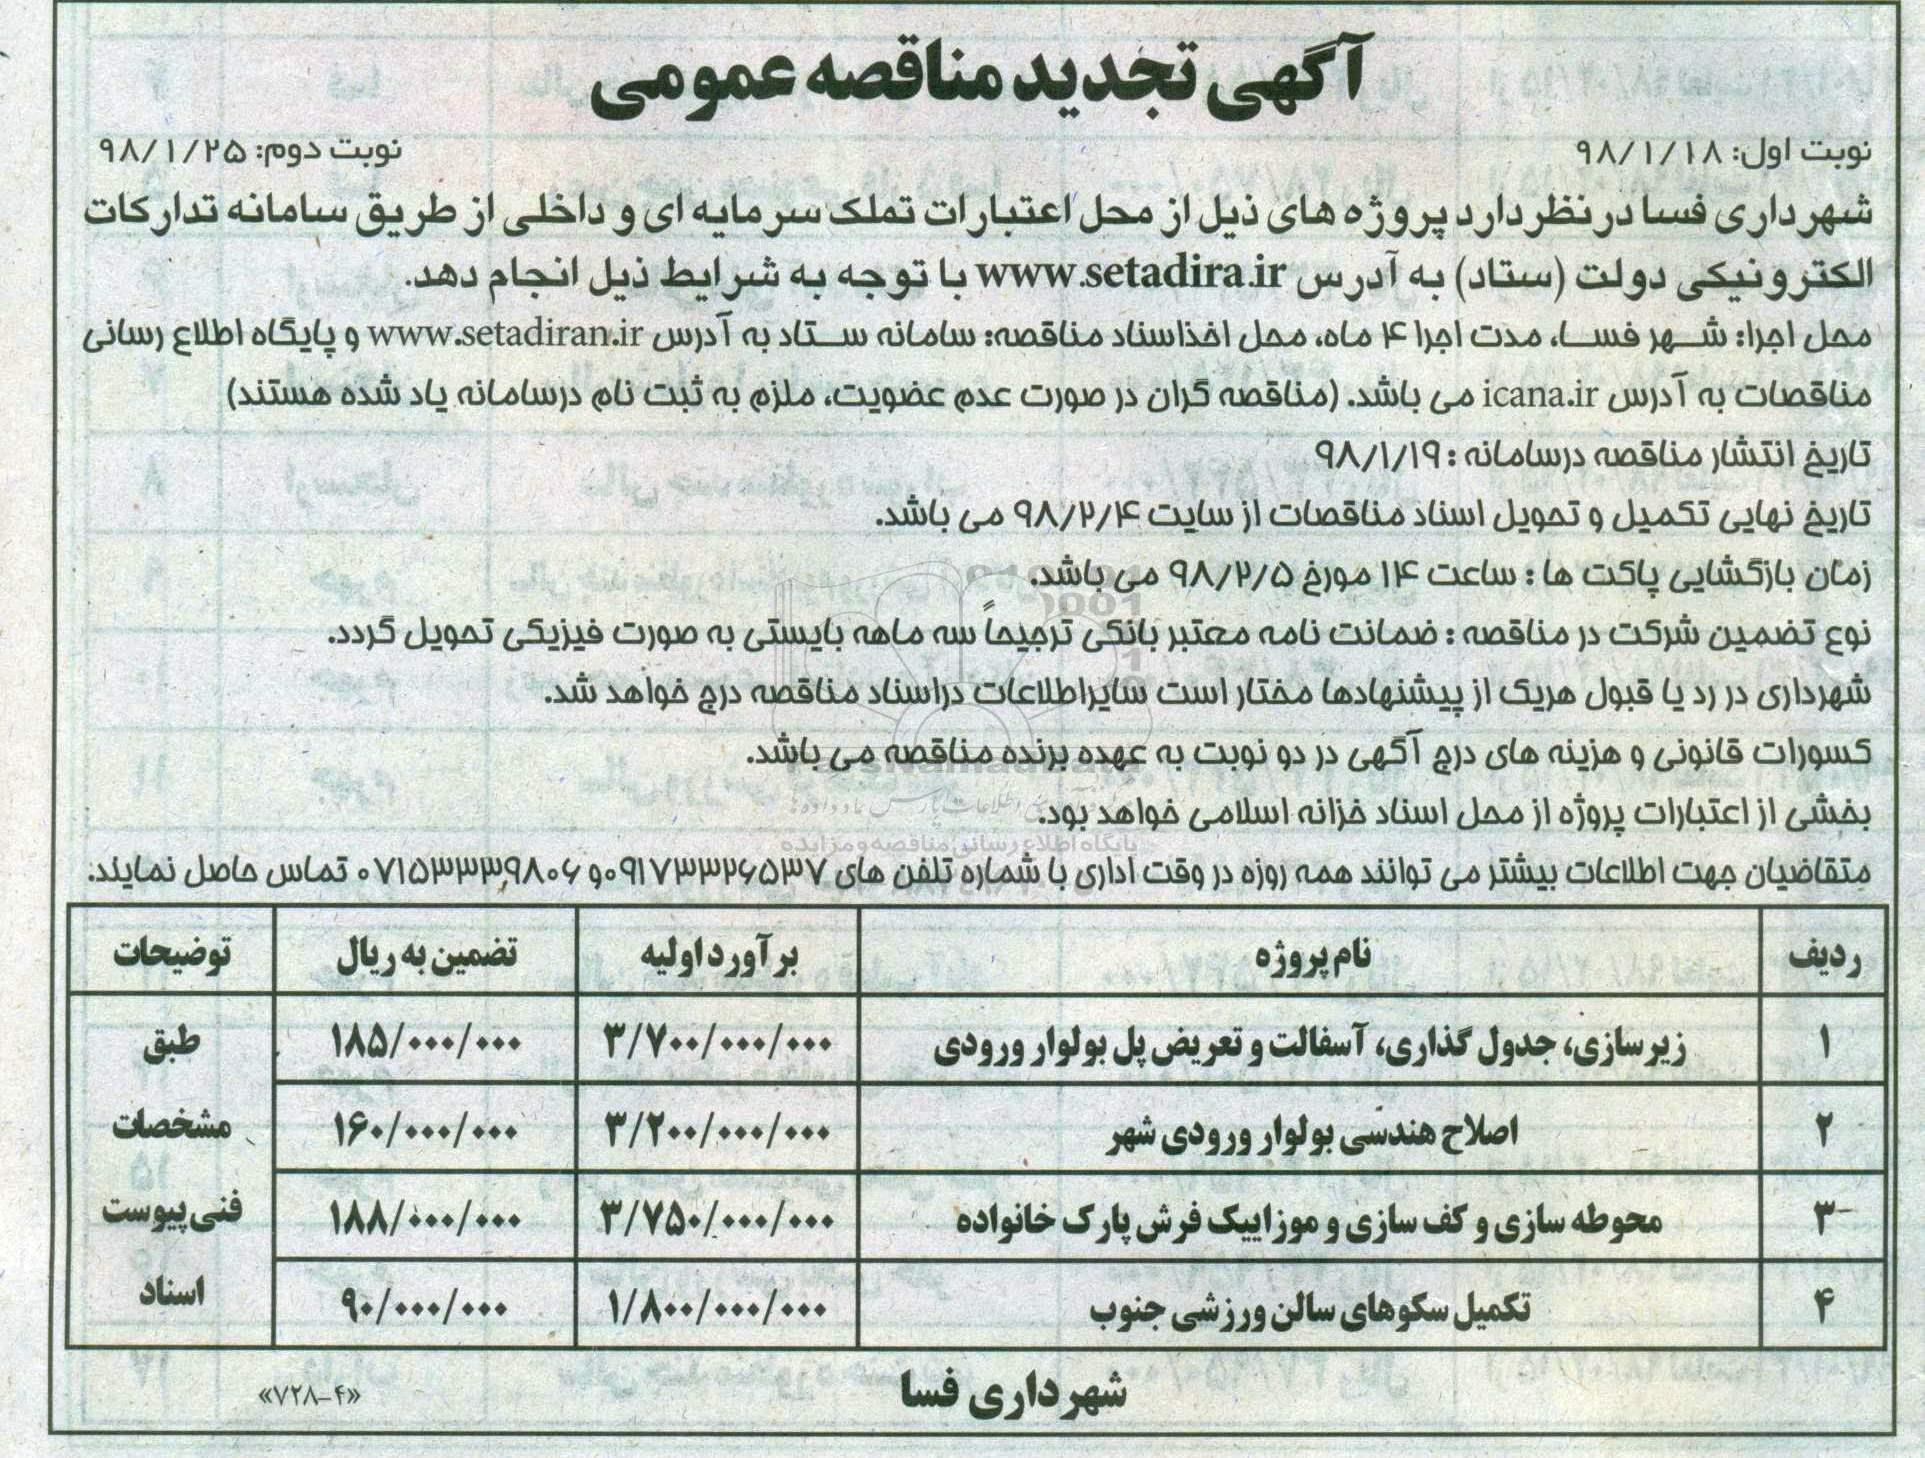 آگهی تجدید مناقصه عمومی
نوبت اول: ۹۸/۱/۱۸ نوبت دوم: ۹۸/۱/۲۵
شهرداری فسا در نظر دارد پروژه های ذیل از محل اعتبارات تملک سرمایه ای و داخلی از طریق سامانه تدارکات
الکترونیکی دولت (ستاد) به آدرس www.setadira.ir با توجه به شرایط ذیل انجام دهد.
محل اجرا: شهر فسا، مدت اجرا ۴ ماه، محل اخذ اسناد مناقصه: سامانه ستاد به آدرس www.setadiran.ir و پایگاه اطلاع رسانی
مناقصات به آدرس icana.ir می باشد. (مناقصه گران در صورت عدم عضویت، ملزم به ثبت نام درسامانه یاد شده هستند)
تاریخ انتشار مناقصه درسامانه : ۹۸/۱/۱۹
تاریخ نهایی تکمیل و تحویل اسناد مناقصات از سایت ۹۸/۲/۴ می باشد.
زمان بازگشایی پاکت ها : ساعت ۱۴ مورخ ۹۸/۲/۵ می باشد.
نوع تضمین شرکت در مناقصه : ضمانت نامه معتبر بانکی ترجیحاً سه ماهه بایستی به صورت فیزیکی تحویل گردد.
شهرداری در رد یا قبول هریک از پیشنهادها مختار است سایراطلاعات دراسناد مناقصه درج خواهد شد.
کسورات قانونی و هزینه های درج آگهی در دو نوبت به عهده برنده مناقصه می باشد.
بخشی از اعتبارات پروژه از محل اسناد خزانه اسلامی خواهد بود.
متقاضیان جهت اطلاعات بیشتر می توانند همه روزه در وقت اداری با شماره تلفن های ۰۹۱۷۳۳۲۶۵۳۷و ۰۷۱۵۳۳۳۹۸۰۶ تماس حاصل نمایند.
ردیف نام پروژه برآورد اولیه تضمین به ریال توضیحات
۱ زیرسازی، جدول گذاری، آسفالت و تعریض پل بولوار ورودی ۳/۷۰۰/۰۰۰/۰۰۰ ۱۸۵/۰۰۰/۰۰۰ طبق
۲ اصلاح هندسی بولوار ورودی شهر ۳/۲۰۰/۰۰۰/۰۰۰ ۱۶۰/۰۰۰/۰۰۰ مشخصات
۳ محوطه سازی و کف سازی و موزاییک فرش پارک خانواده ۳/۷۵۰/۰۰۰/۰۰۰ ۱۸۸/۰۰۰/۰۰۰ فنی پیوست
۴ تکمیل سکوهای سالن ورزشی جنوب ۱/۸۰۰/۰۰۰/۰۰۰ ۹۰/۰۰۰/۰۰۰ اسناد
شهرداری فسا
«۷۲۸-۴»
پایگاه اطلاع رسانی مناقصه و مزایده